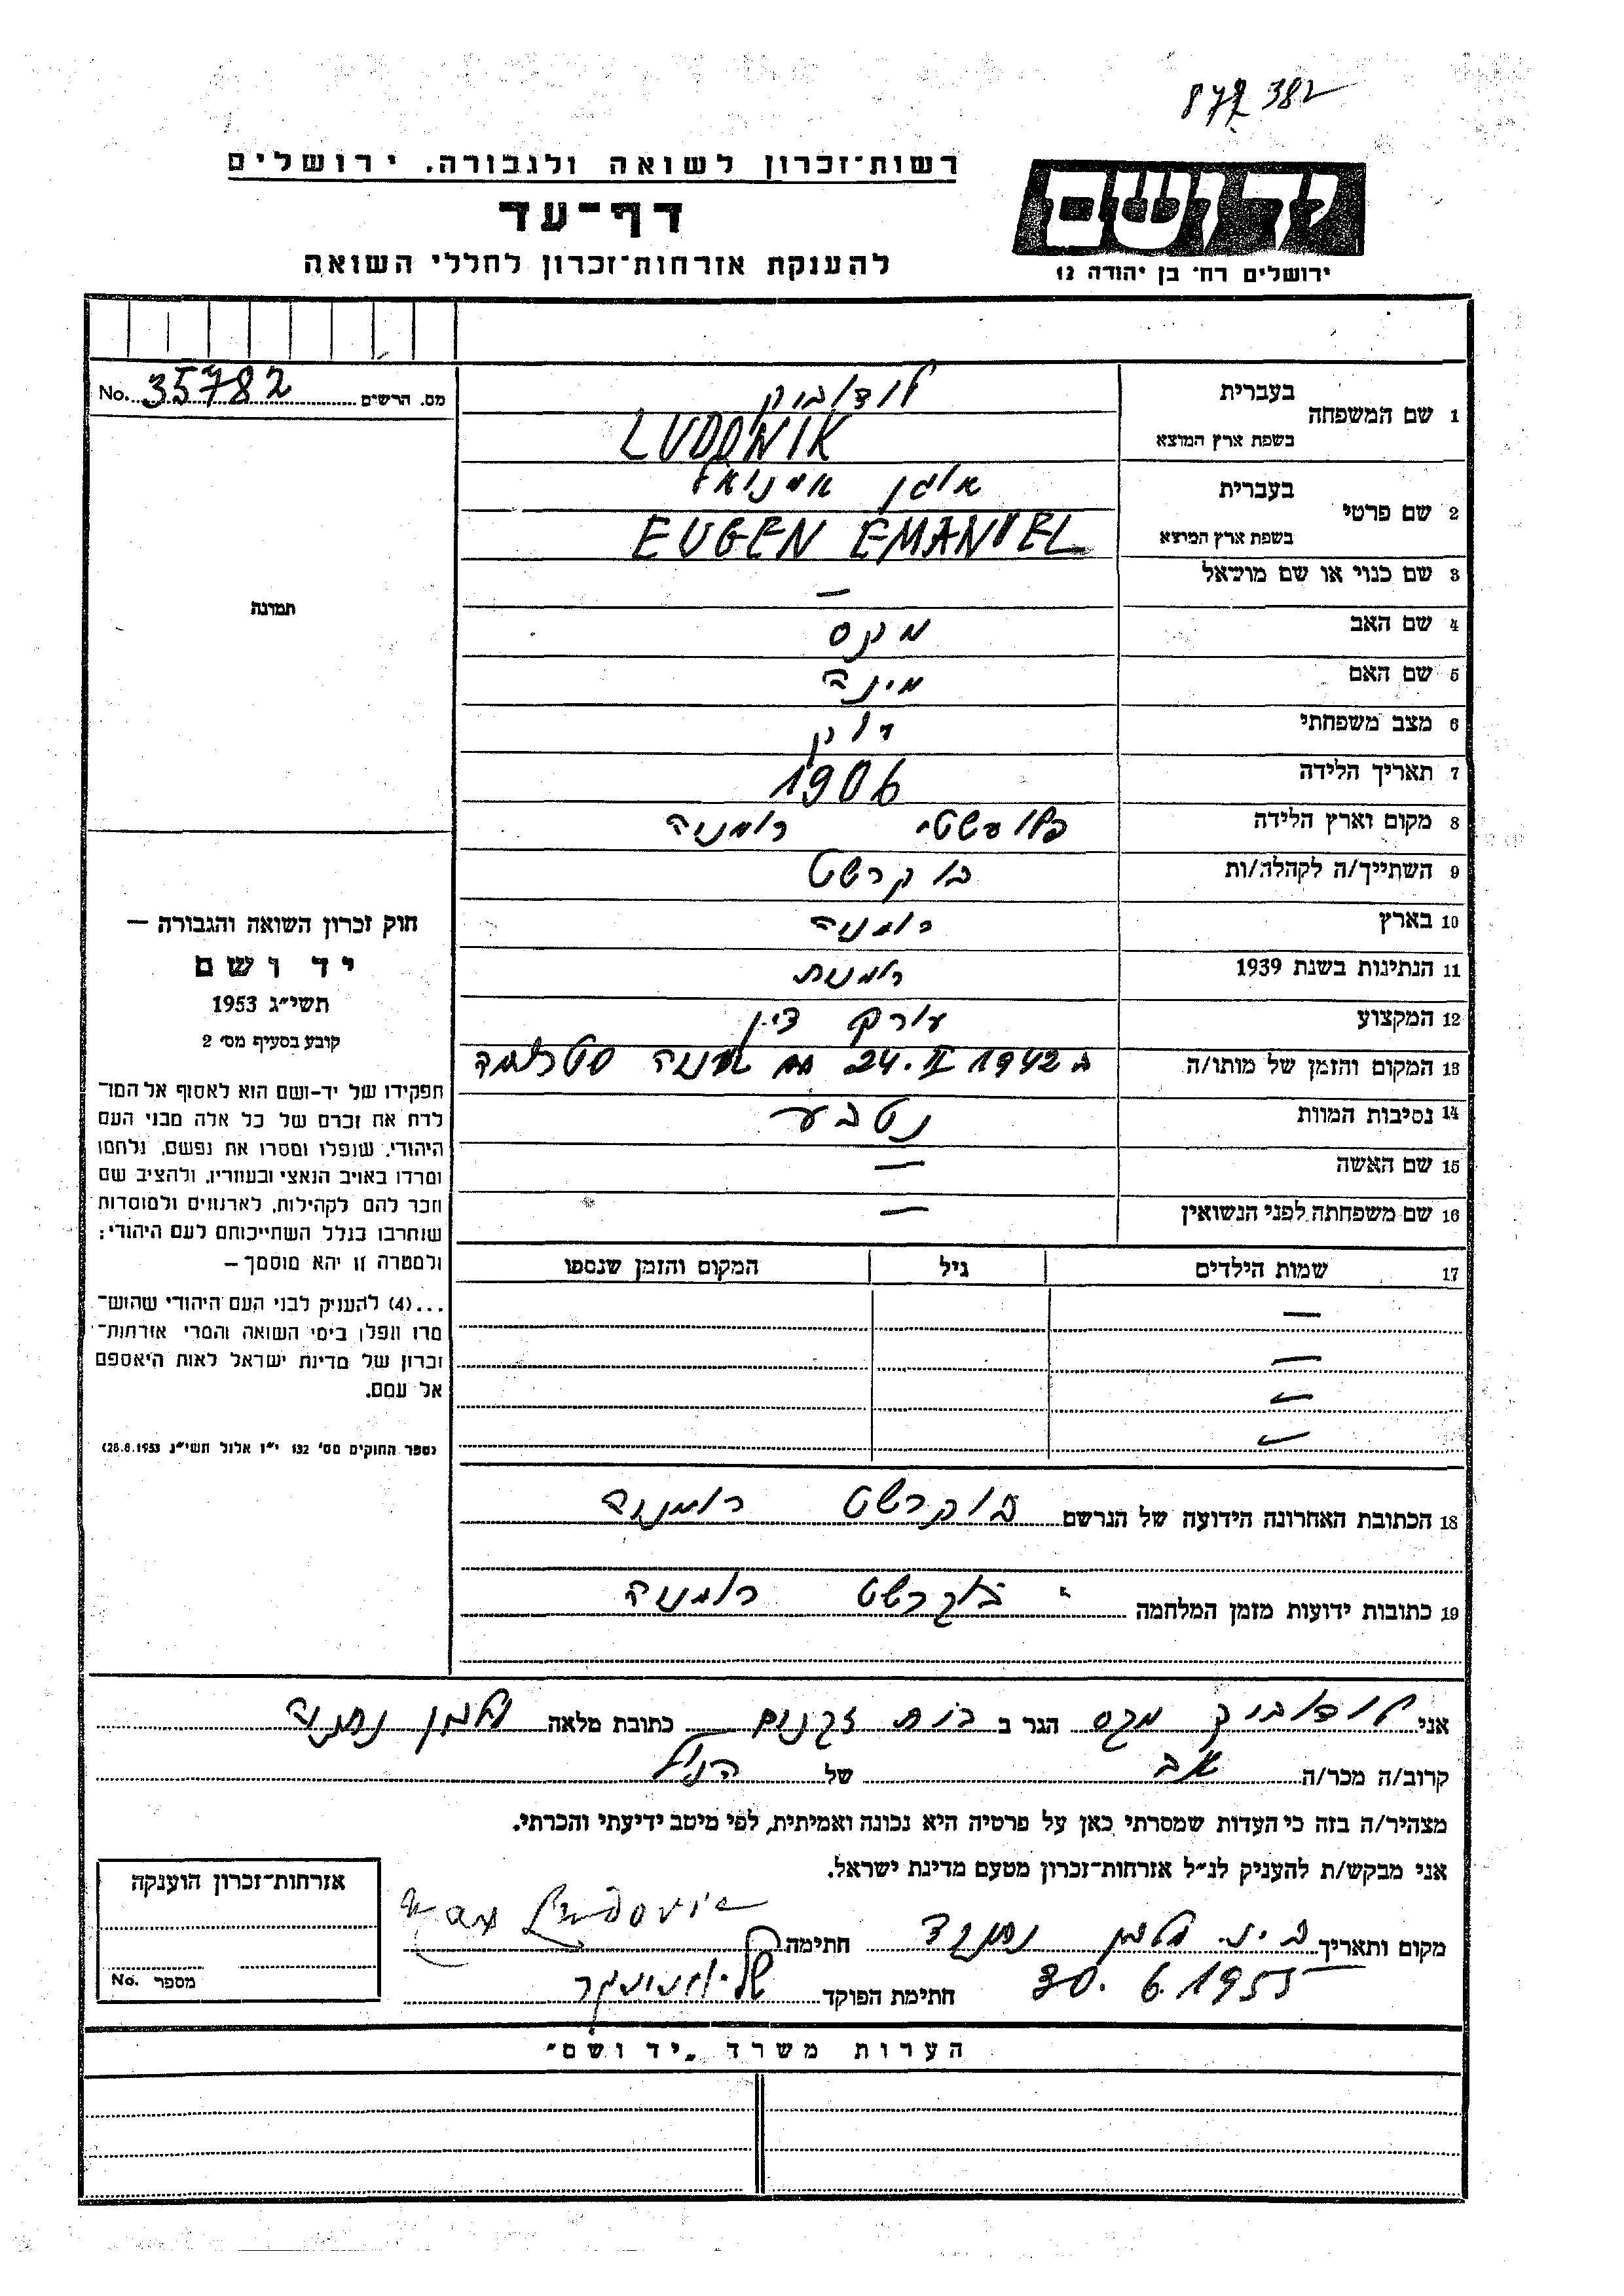 382
רשות־זכרון לשואה ולגבורה. ירושלים
דף־עד
להענקת אזרחות־זכרון לחללי השואה
יד ושם
ירושלים רח׳ בן יהודה 12
מס. הרשים No. 35782
1 שם המשפחה בעברית לודוביק
בשפת ארץ המוצא LUDOWIK
2 שם פרטי בעברית אוגן אמנואל
בשפת ארץ המוצא EUGEN EMANUEL
3 שם כנוי או שם מושאל —
4 שם האב מקס
5 שם האם מינה
6 מצב משפחתי רוק
7 תאריך הלידה 1906
8 מקום וארץ הלידה פלועשטי רומניה
9 השתייך/ה לקהלה/ות בוקרשט
10 בארץ רומניה
11 הנתינות בשנת 1939 רומנית
12 המקצוע עורך דין
13 המקום והזמן של מותו/ה ב 24.II 1942 עם אוניה סטרומה
14 נסיבות המוות נטבע
15 שם האשה —
16 שם משפחתה לפני הנשואין —
17 שמות הילדים גיל המקום והזמן שנספו
—
—
—
—
18 הכתובת האחרונה הידועה של הנרשם בוקרשט רומניה
19 כתובות ידועות מזמן המלחמה בוקרשט רומניה
תמונה
חוק זכרון השואה והגבורה —
יד ושם
תשי״ג 1953
קובע בסעיף מס׳ 2
תפקידו של יד-ושם הוא לאסוף אל המו־
לדת את זכרם של כל אלה מבני העם
היהודי, שנפלו ומסרו את נפשם, נלחמו
ומרדו באויב הנאצי ובעוזריו, ולהציב שם
וזכר להם לקהילות, לארגונים ולמוסדות
שנחרבו בגלל השתייכותם לעם היהודי;
ולמטרה זו יהא מוסמך —
...(4) להעניק לבני העם היהודי שהוש־
מדו ונפלו בימי השואה והמרי אזרחות־
זכרון של מדינת ישראל לאות היאספם
אל עמם.
(ספר החוקים מס׳ 132 י״ז אלול תשי״ג 28.8.1953)
אני לודוביק מקס הגר ב בית זקנים כתובת מלאה נתניה
קרוב/ה מכר/ה אב של הנ״ל
מצהיר/ה בזה כי העדות שמסרתי כאן על פרטיה היא נכונה ואמיתית, לפי מיטב ידיעתי והכרתי.
אני מבקש/ת להעניק לנ״ל אזרחות־זכרון מטעם מדינת ישראל.
מקום ותאריך נתניה חתימה Max Ludovic
30. 6. 1955 חתימת הפוקד
אזרחות־זכרון הוענקה
מספר No.
הערות משרד „יד ושם״